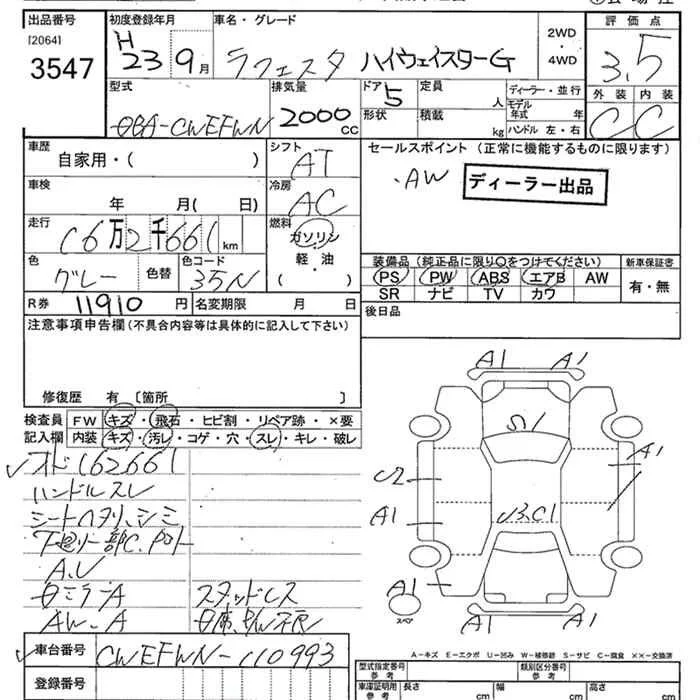 出品番号 初度登録年月 車名・グレード 2WD・4WD 評価点
[2064] H
3547 23 9月 ラフェスタ ハイウェイスターG 3.5
型式 排気量 ドア 5 定員 人 ディーラー・並行 外装 内装
モデル年式 年
DBA-CWEFWN 2000cc 形状 積載 kg ハンドル 左・右 C C
車歴 シフト セールスポイント(正常に機能するものに限ります)
自家用・( ) AT
・AW ディーラー出品
車検 冷房
年 月( 日) AC
走行 燃料
16万2千661km ガソリン
軽・油
( )
色 色替 色コード
グレー 35N
装備品(純正品に限り○をつけてください) 新車保証書
PS PW ABS エアB AW 有・無
SR ナビ TV カワ
R券 11910円 名変期限 月 日 後日品
注意事項申告欄(不具合内容等は具体的に記入して下さい)
修復歴 有 [箇所 ]
検査員 FW キズ・飛石・ヒビ割・リペア跡・×要
記入欄 内装 キズ・汚レ・コゲ・穴・スレ・キレ・破レ
オド162661
ハンドルスレ
シートヘタリ、シミ
下廻リ一部C.
A.U
ミラーA スタッドレス
AW.A
車台番号 CWEFWN-110993
登録番号
A1 A1
S1
U2 A1
A1 C1
A1
スペア
A1 A1
A-キズ E-エクボ U-凹み W-補修跡 S-サビ C-腐食 ××-交換済
型式指定番号 参考 類別区分番号 参考
車庫証明用 参考 長さ cm 幅 cm 高さ cm